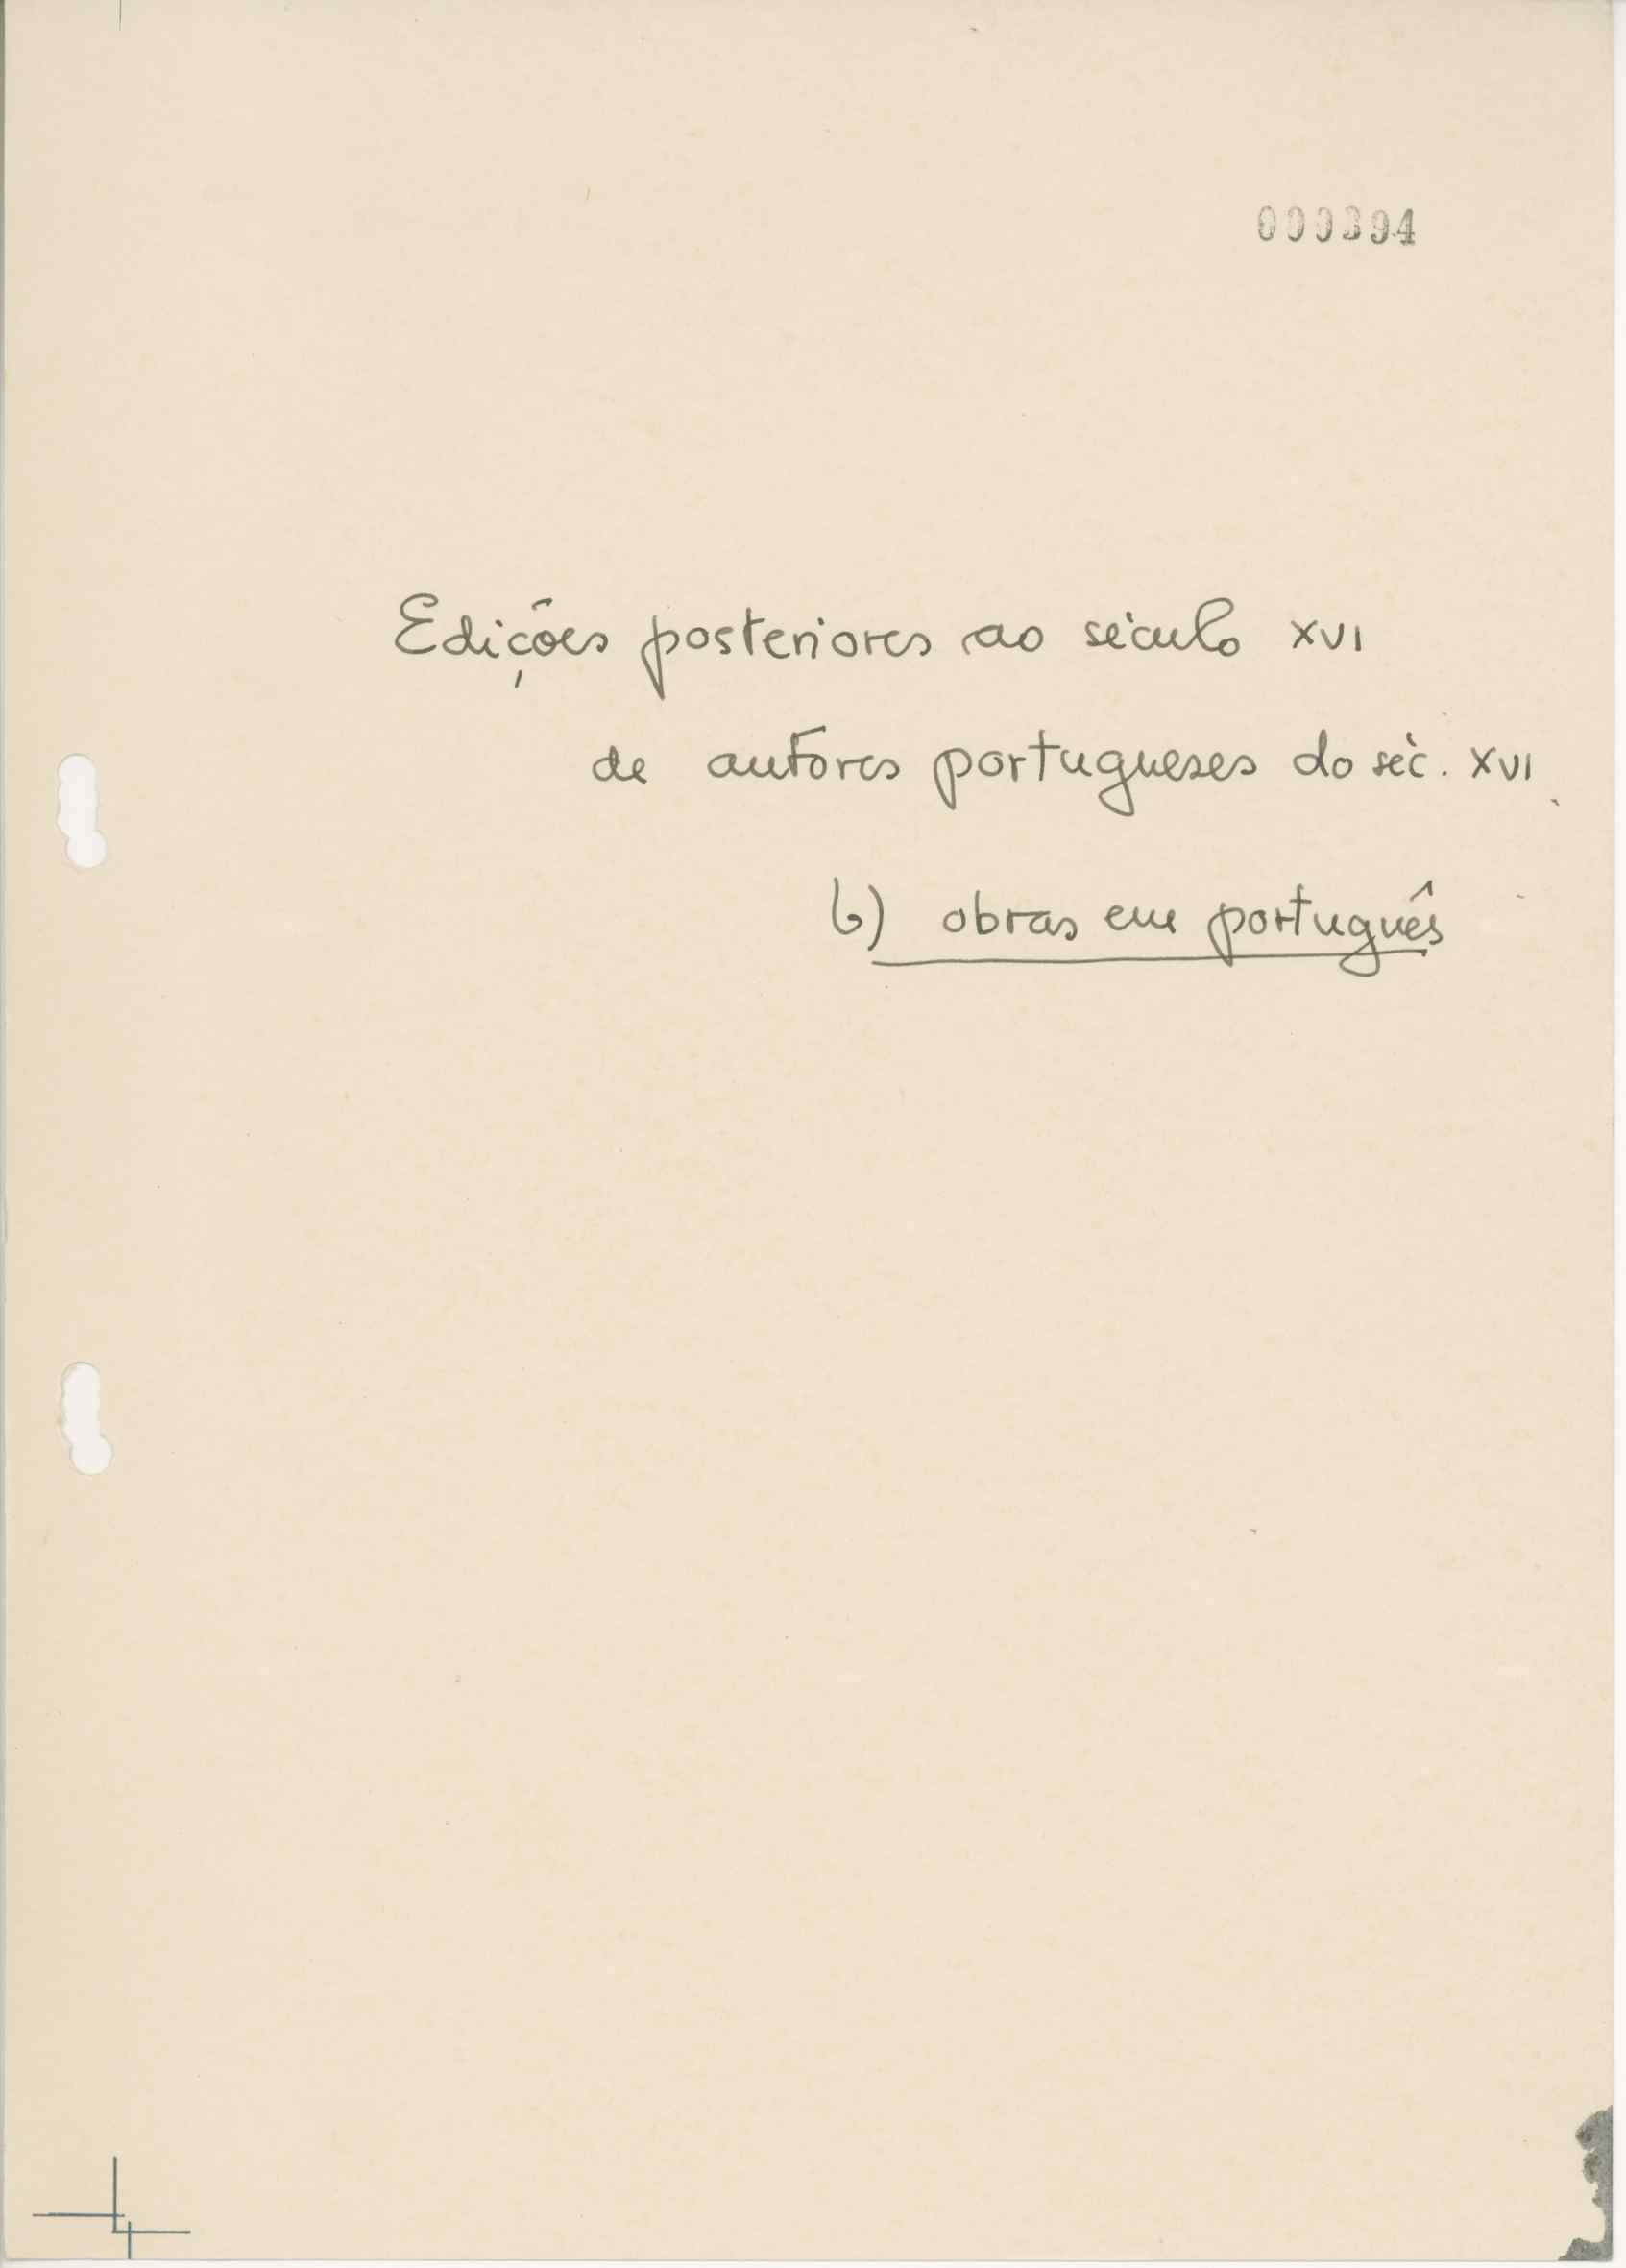 000394
Edições posteriores ao século XVI
de autores portugueses do séc. XVI
b) obras em português